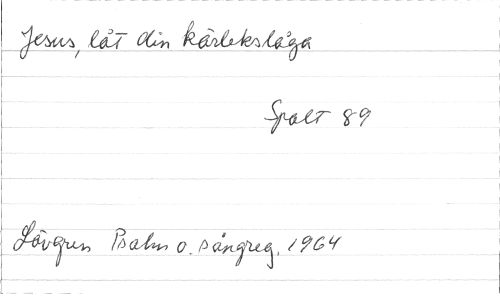 Jesus, låt din kärlekslåga
Spalt 89
Lövgren Psalm o. sångreg. 1964